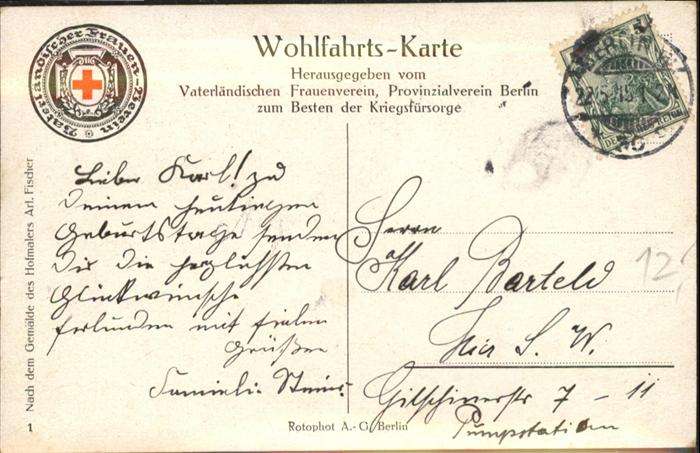 Vaterländischer Frauen-Verein
Wohlfahrts-Karte
Herausgegeben vom
Vaterländischen Frauenverein, Provinzialverein Berlin
zum Besten der Kriegsfürsorge
BERLIN
Nach dem Gemälde des Hofmalers Arl. Fischer
1
Lieber Karl! zu
Deinem heutigen
Geburtstage senden
Dir die herzlichsten
Glückwünsche
verbunden mit vielen
Grüßen
Familie
Herrn
Karl Barteld
Hier S. W.
Gitschinerstr 7 - 11
Pumpstation
12,
Rotophot A.-G. Berlin